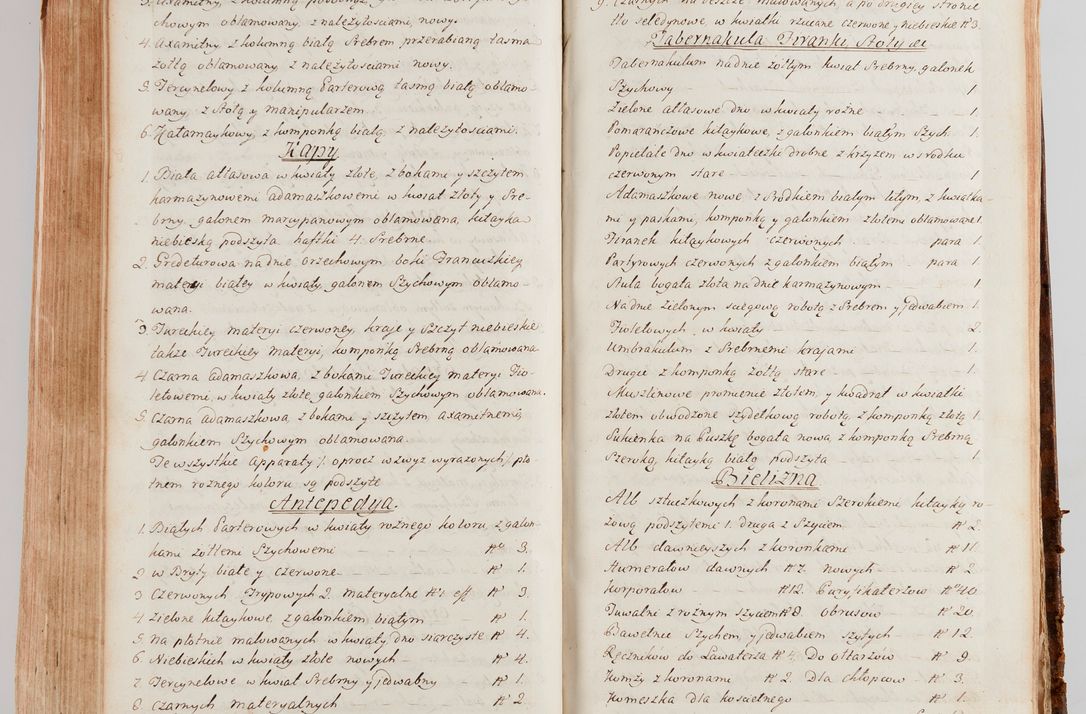 chowym oblamowany, z należytościami, nowy.
4. Axamitny z kolumną białą Srebrem przerabianą taśmą
żołtą oblamowany z należytościami nowy.
5. Tercynelowy z kolumną Parterową taśmą białą oblamo
wany, z Stołą y manipularzem.
6. Hatamaykowy, z komponką białą, z należytościami.
Kapy
1. Biała atłasowa w kwiaty złote, z bokami y szczytem
karmazynowemi adamaszkowemi w kwiat złoty y Sre-
brny, galonem marcypanowym oblamowana, kitayką
niebieską podszyta haftki 4. Srebrne.
2. Gredeturowa na dnie orzechowym boki Francuzkiey
materyi białey w kwiaty, galonem Szychowym oblamo-
wana.
3. Tureckiey materyi czerwoney, kraje y Szczyt niebieskie
także Tureckiey materyi, komponką Srebrną oblamowana
4. Czarna adamaszkowa, z bokami Tureckiey materyi Fio-
letowemi, w kwiaty złote, galonkiem Szychowym oblamowana.
5. Czarna adamaszkowa, z bokami y szczytem axamitnemi,
galonkiem Szychowym oblamowana.
Te wszystkie apparaty /: oprocz wzwyż wyrażonych:/ pło-
tnem rożnego koloru są podszyte
Antepedya.
1. Białych Parterowych w kwiaty rożnego koloru, z galon-
kami żołtemi Szychowemi - - - No 3.
2. w Bryty białe y czerwone - - - No 1.
3. Czerwonych Trypowych 2. materyalne No 1. eff No 3.
4. Zielone kitaykowe, z galonkiem białym - No 1.
5. Na płotnie malowanych w kwiaty, dno siarczyste No 4.
6. Niebieskich w kwiaty złote nowych - - No 4.
7. Tercynelowe w kwiat Srebrny y jedwabny - No 1.
8. Czarnych materyalnych - - - No 2.
9. Czarnych na desżce malowanych, a po drugiey stronie
tło seledynowe, w kwiatki rzucane czerwone y niebieskie No 3.
Tabernakula Firanki, Stoły etc
Tabernakulum na dnie żołtym kwiat Srebrny, galonek
Szychowy - - - 1
Zielone atłasowe dno w kwiaty rożne - - - 1.
Pomarańczowe kitaykowe, z galonkiem białym Szych: - 1.
Popielate dno w kwiateczki drobne z krzyżem w srodku
czerwonym stare - - - 1
Adamaszkowe nowe z Srodkiem białym litym, z kwiatka-
mi y paskami, komponką y galonkiem złotemi oblamowane 1.
Firanek kitaykowych czerwonych - para 1.
Partyrowych czerwonych z galonkiem białym - para 1.
Stuła bogata złota na dnie karmazynowym - - 1
Na dnie zielonym robotą z Srebrem y jedwabiem 1.
Fioletowych, w kwiaty - - - 2.
Umbrakulum z Srebrnemi krajami - - 1
Drugie z komponką żołtą stare - - - 1.
Muszlinowe promienie złotem, y kwadrat w kwiatki
złotem obwodzone szydełkową robotą, z komponką złotą 1.
Sukienka na Puszkę bogata nowa, z komponką Srebrną
Szeroką, kitayką białą podszyta - - - 1.
Bielizna
Alb sztuczkowych z koronami Szerokiemi kitayką ro-
żową podszytemi 1. druga z Szyciem - No 2.
Alb dawnieyszych z koronkami - - No 11.
Humerałow dawnych No 7. nowych - No 2.
Korporałow - No 12. Puryfikaterzow No 40.
Tuwalni z rożnym szyciem No 8. obrusow - No 20.
Bawełnic Szychem, y jedwabiem szytych - No 12.
Ręcznikow do Lawaterza No 4. Do ołtarzow - No 9.
Komży z koronami No 2. dla chłopcow - No 3.
Komeszka dla kościelnego - - No 1.